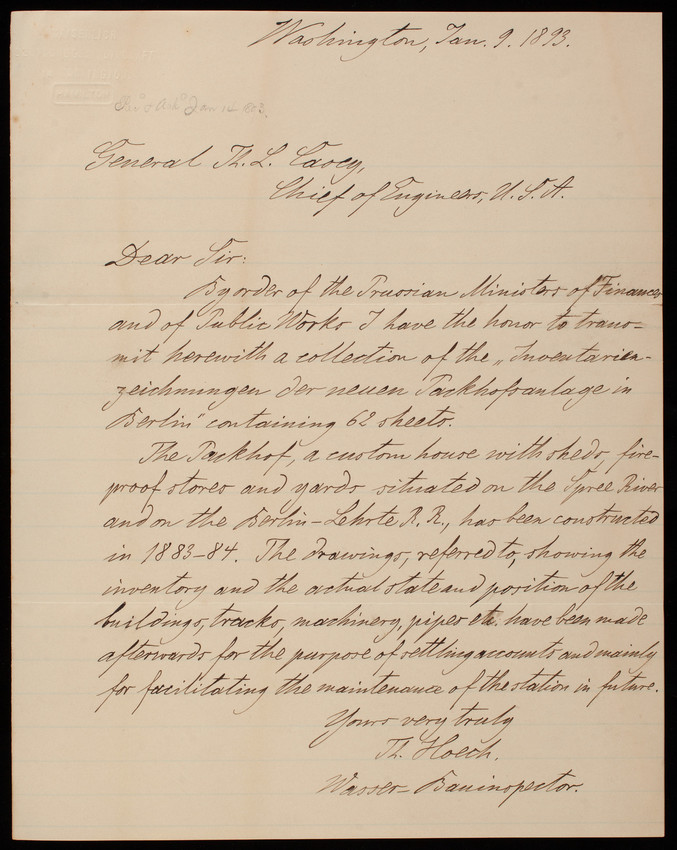 Washington, Jan. 9. 1893.
General Th. L. Casey,
Chief of Engineers, U. S. A.
Dear Sir:
By order of the Prussian Ministers of Finances
and of Public Works I have the honor to trans=
mit herewith a collection of the „Inventarien-
zeichnungen der neuen Packhofsanlage in
Berlin" containing 62 sheets.
The Packhof, a custom house with sheds, fire-
proof stores and yards situated on the Spree River
and on the Berlin-Lehrte R. R., has been constructed
in 1883-84. The drawings, referred to, showing the
inventory and the actual state and position of the
buildings, tracks, machinery, pipes etc. have been made
afterwards for the purpose of settling accounts and mainly
for facilitating the maintenance of the station in future.
Yours very truly
Th. Hoech.
Wasser-Bauinspector.